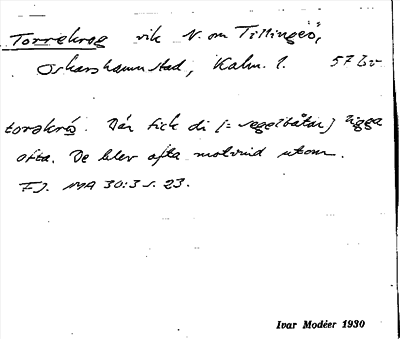 Torrekrog vik N. om Tillingeö,
Oskarshamn stad, Kalm. l. 57
torəkró. Där fick di [= segelbåtar] ligga
ofta. De blev ofta motvind utom.
FJ. MA 30:3 s. 23.
Ivar Modéer 1930